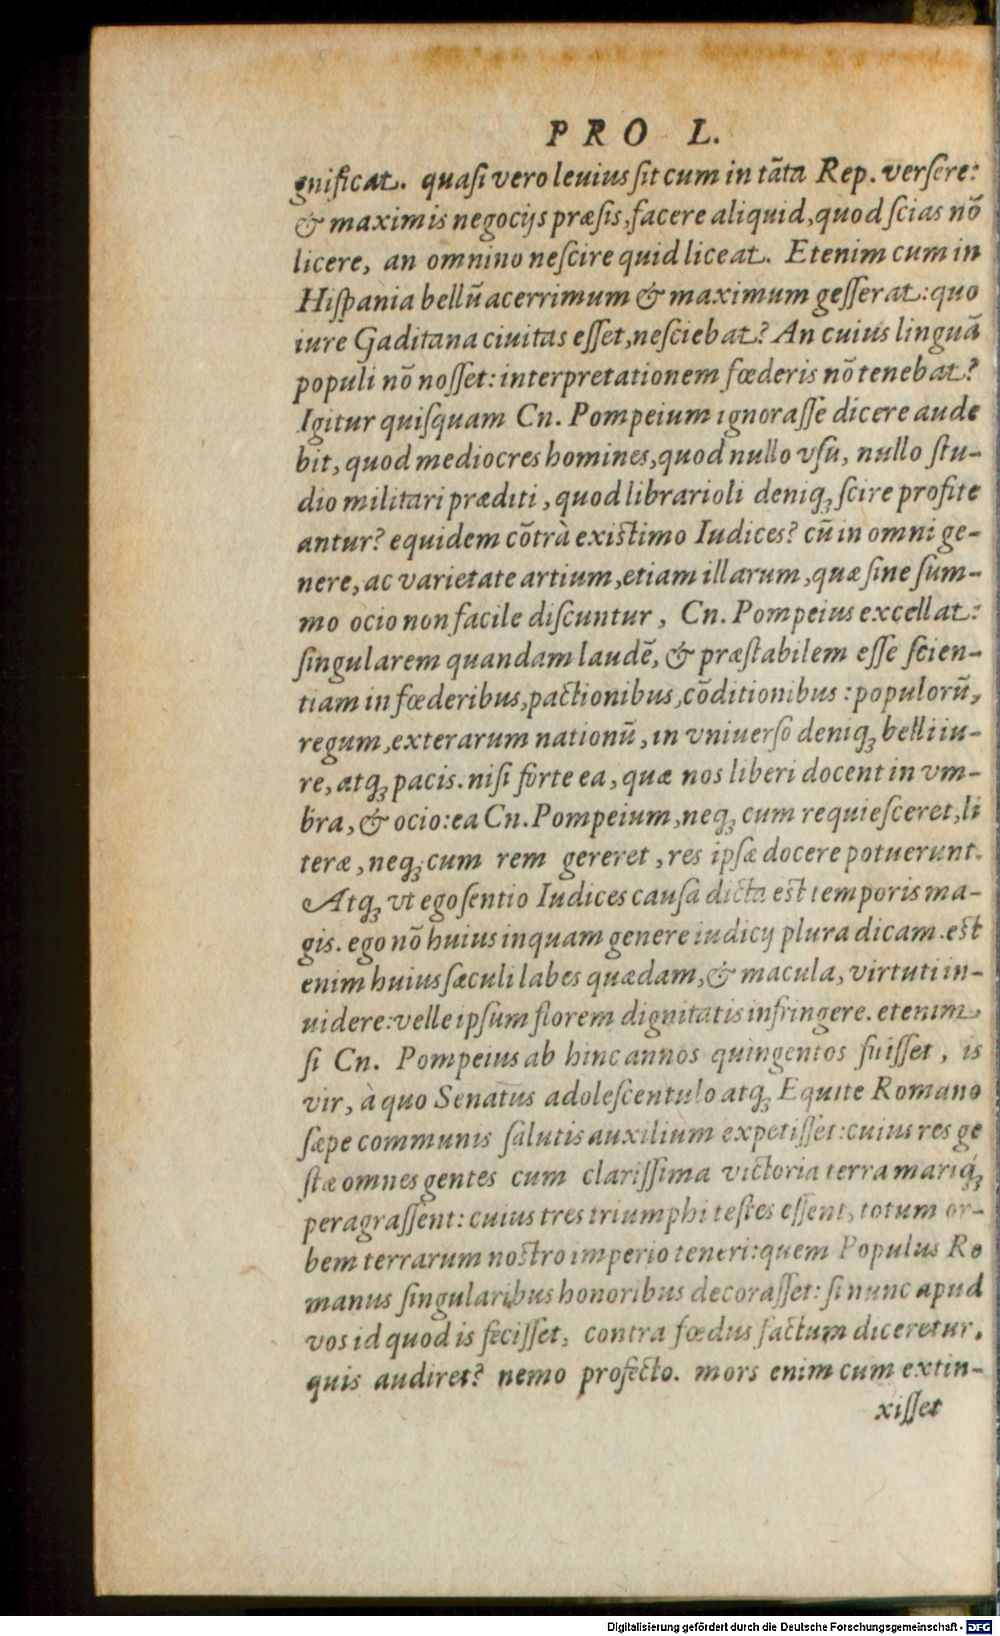 PRO L.
gnificat. quasi vero levius sit cum in tāta Rep. versere:
& maximis negocijs præsis, facere aliquid, quod scias nō
licere, an omnino nescire quid liceat. Etenim cum in
Hispania bellū acerrimum & maximum gesserat: quo
iure Gaditana ciuitas esset, nesciebat? An cuius linguā
populi nō nosset: interpretationem fœderis nō tenebat?
Igitur quisquam Cn. Pompeium ignorasse dicere aude
bit, quod mediocres homines, quod nullo vsu, nullo stu-
dio militari præditi, quod librarioli deniq; scire profite
antur? equidem cōtrà existimo Iudices? cū in omni ge-
nere, ac varietate artium, etiam illarum, quæ sine sum-
mo ocio non facile discuntur, Cn. Pompeius excellat:
singularem quandam laudē, & præstabilem esse scien-
tiam in fœderibus, pactionibus, cōditionibus: populorū,
regum, exterarum nationū, in vniuerso deniq; belli iu-
re, atq; pacis. nisi forte ea, quæ nos liberi docent in vm-
bra, & ocio: ea Cn. Pompeium, neq; cum requiesceret, li
teræ, neq; cum rem gereret, res ipsæ docere potuerunt.
Atq; vt ego sentio Iudices causa dicta est temporis ma-
gis. ego nō huius inquam genere iudicij plura dicam. est
enim huius sæculi labes quædam, & macula, virtuti in-
uidere: velle ipsum florem dignitatis infringere. etenim
si Cn. Pompeius ab hinc annos quingentos fuisset, is
vir, à quo Senatus adolescentulo atq; Equite Romano
sæpe communis salutis auxilium expetisset: cuius res ge
stæ omnes gentes cum clarissima victoria terra mariq́;
peragrassent: cuius tres triumphi testes essent, totum or-
bem terrarum nostro imperio teneri: quem Populus Ro
manus singularibus honoribus decorasset: si nunc apud
vos id quod is fecisset, contra fœdus factum diceretur.
quis audiret? nemo profecto. mors enim cum extin-
xisset
Digitalisierung gefördert durch die Deutsche Forschungsgemeinschaft - DFG